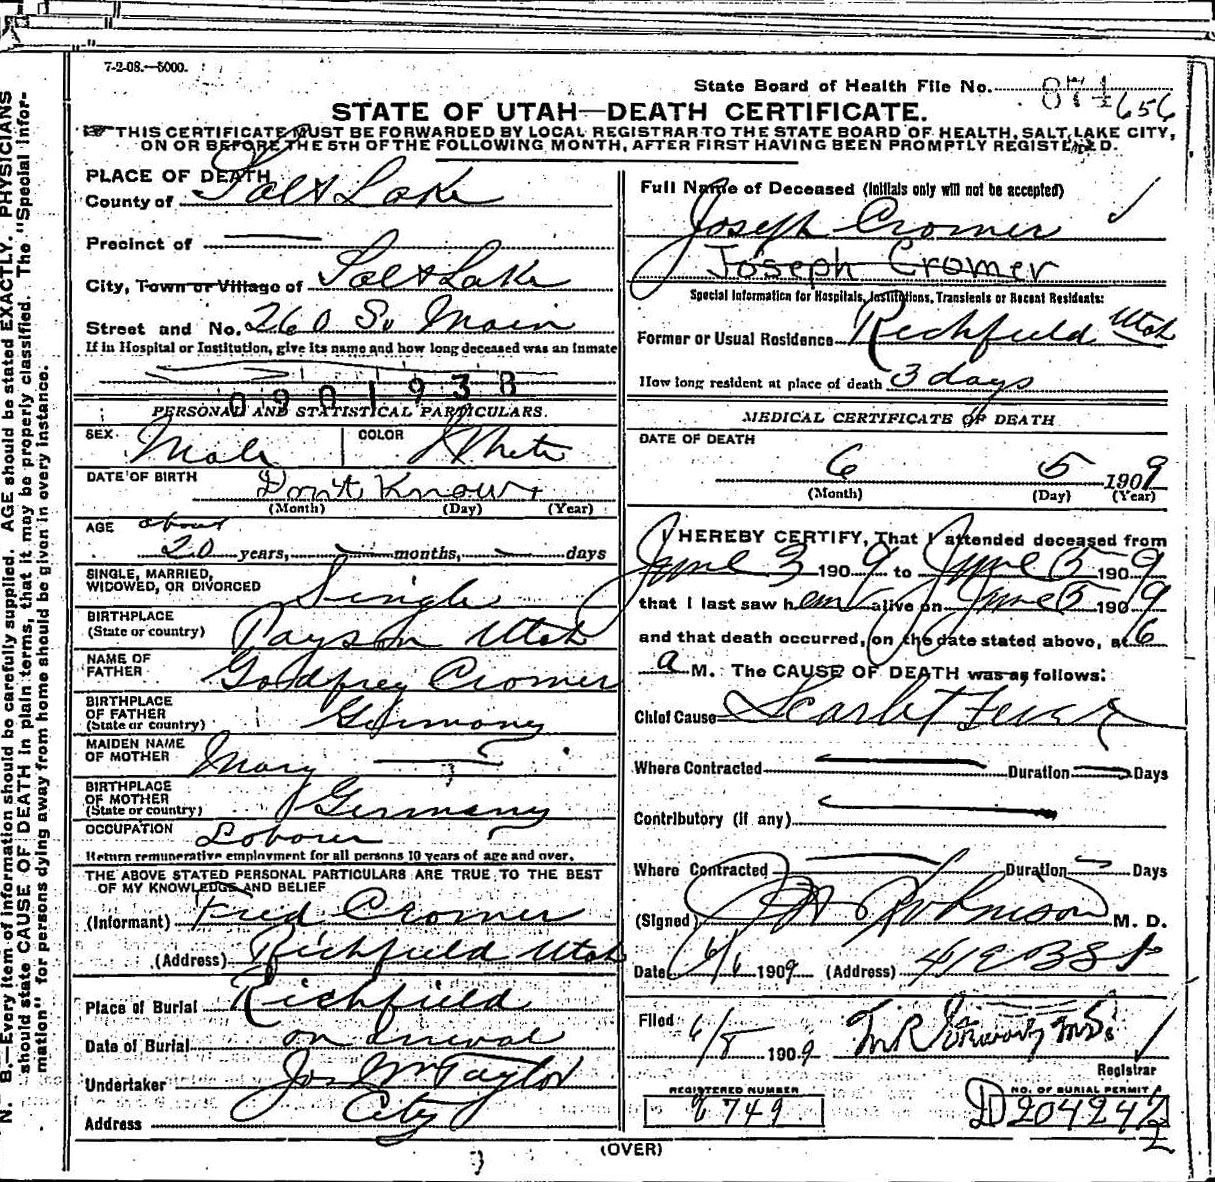 7-2-08.—5000.
State Board of Health File No. 874 656
STATE OF UTAH—DEATH CERTIFICATE.
☞ THIS CERTIFICATE MUST BE FORWARDED BY LOCAL REGISTRAR TO THE STATE BOARD OF HEALTH, SALT LAKE CITY,
ON OR BEFORE THE 5TH OF THE FOLLOWING MONTH, AFTER FIRST HAVING BEEN PROMPTLY REGISTERED.
PLACE OF DEATH
County of Salt Lake
Precinct of —
City, Town or Village of Salt Lake
Street and No. 260 So Main
If in Hospital or Institution, give its name and how long deceased was an inmate
0901938
PERSONAL AND STATISTICAL PARTICULARS.
SEX Male COLOR White
DATE OF BIRTH Don't Know
(Month) (Day) (Year)
AGE about
20 years, — months, — days
SINGLE, MARRIED,
WIDOWED, OR DIVORCED Single
BIRTHPLACE
(State or country) Payson Utah
NAME OF
FATHER Goldfrey Cromer
BIRTHPLACE
OF FATHER
(State or country) Germany
MAIDEN NAME
OF MOTHER Mary — ?
BIRTHPLACE
OF MOTHER
(State or country) Germany
OCCUPATION Laborer
Return remunerative employment for all persons 10 years of age and over.
THE ABOVE STATED PERSONAL PARTICULARS ARE TRUE TO THE BEST
OF MY KNOWLEDGE AND BELIEF
(Informant) Fred Cromer
(Address) Richfield Utah
Place of Burial Richfield
Date of Burial on arrival
Undertaker Jos Wm Taylor
Address City
Full Name of Deceased (Initials only will not be accepted)
Joseph Cromer
Joseph Cromer
Special Information for Hospitals, Institutions, Transients or Recent Residents:
Former or Usual Residence Richfield Utah
How long resident at place of death 3 days
MEDICAL CERTIFICATE OF DEATH
DATE OF DEATH
6 5 1909
(Month) (Day) (Year)
I HEREBY CERTIFY, That I attended deceased from
June 3 1909 to June 5 1909
that I last saw him alive on June 5 1909
and that death occurred, on the date stated above, at 6
a M. The CAUSE OF DEATH was as follows:
Chief Cause Scarlet Fever
Where Contracted — Duration — Days
Contributory (if any) —
Where Contracted — Duration — Days
(Signed) Robinson M. D.
Date 6/6 1909 (Address) 41 E 3 S St
Filed 6/8 1909
Registrar
REGISTERED NUMBER
749
NO. OF BURIAL PERMIT
D 20424 1/2
(OVER)
N. B.—Every item of information should be carefully supplied. AGE should be stated EXACTLY. PHYSICIANS
should state CAUSE OF DEATH in plain terms, that it may be properly classified. The "Special Infor-
mation" for persons dying away from home should be given in every instance.